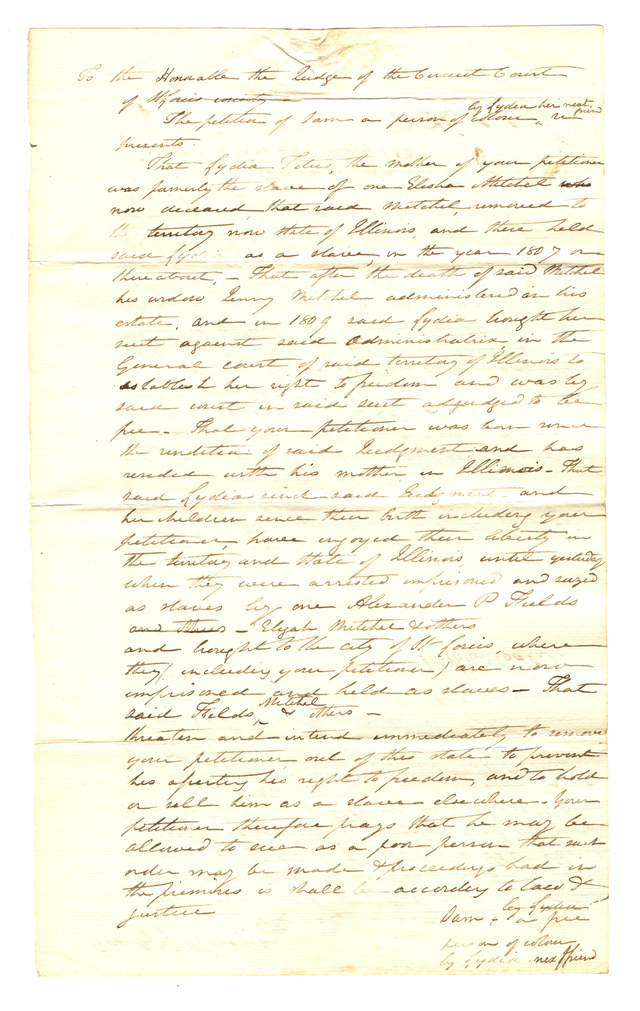 To the Honorable the Judge of the Circuit Court
of St Louis county
by Lydia her next friend
The petition of Sam a person of colour re
presents
That Lydia Titus, the mother of your petitioner
was formerly the slave of one Elisha Mitchel who
now deceased, that said Mitchel, removed to
the territory now state of Illinois, and there held
said Lydia as a slave, in the year 1807 or
thereabout, – That after the death of said Mitchel
his widow Jenny Mitchel administered on his
estate, and in 1809 said Lydia brought her
suit against said administratrix, in the
General court of said territory of Illinois to
establish her right to freedom and was by
said court in said suit adjudged to be
free – That your petitioner was born since
the rendition of said Judgment and has
resided with his mother in Illinois – That
said Lydia since said Judgment and
her children since their birth including your
petitioner, have enjoyed their liberty in
the territory and state of Illinois, until yesterday
when they were arrested imprisoned and seized
as slaves by one Alexander P Fields
and others – Elijah Mitchel & others
and brought to the city of St Louis, where
they (including your petitioner) are now
imprisoned and held as slaves – That
said Fields, Mitchel & others –
threaten and intend immediately to remove
your petitioner out of this state to prevent
his asserting his right to freedom, and to hold
or sell him as a slave elsewhere – Your
petitioner therefore prays that he may be
allowed to sue as a poor person that such
order may be made & proceedings had in
the premises as shall be according to law &
justice
by Lydia
Sam – a free
person of colour
by Lydia next friend